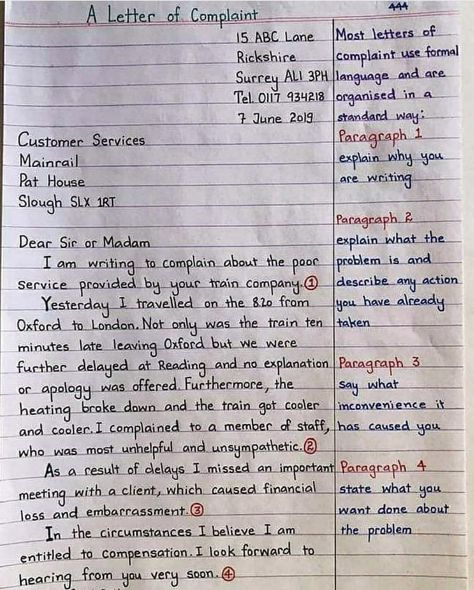 444
A Letter of Complaint
15 ABC Lane
Rickshire
Surrey AL1 3PH
Tel. 0117 934218
7 June 2019
Customer Services
Mainrail
Pat House
Slough SLX 1RT
Dear Sir or Madam
I am writing to complain about the poor
service provided by your train company.①
Yesterday I travelled on the 8.20 from
Oxford to London. Not only was the train ten
minutes late leaving Oxford but we were
further delayed at Reading and no explanation
or apology was offered. Furthermore, the
heating broke down and the train got cooler
and cooler. I complained to a member of staff,
who was most unhelpful and unsympathetic.②
As a result of delays I missed an important
meeting with a client, which caused financial
loss and embarrassment.③
In the circumstances I believe I am
entitled to compensation. I look forward to
hearing from you very soon.④
Most letters of
complaint use formal
language and are
organised in a
standard way:
Paragraph 1
explain why you
are writing
Paragraph 2
explain what the
problem is and
describe any action
you have already
taken
Paragraph 3
say what
inconvenience it
has caused you
Paragraph 4
state what you
want done about
the problem